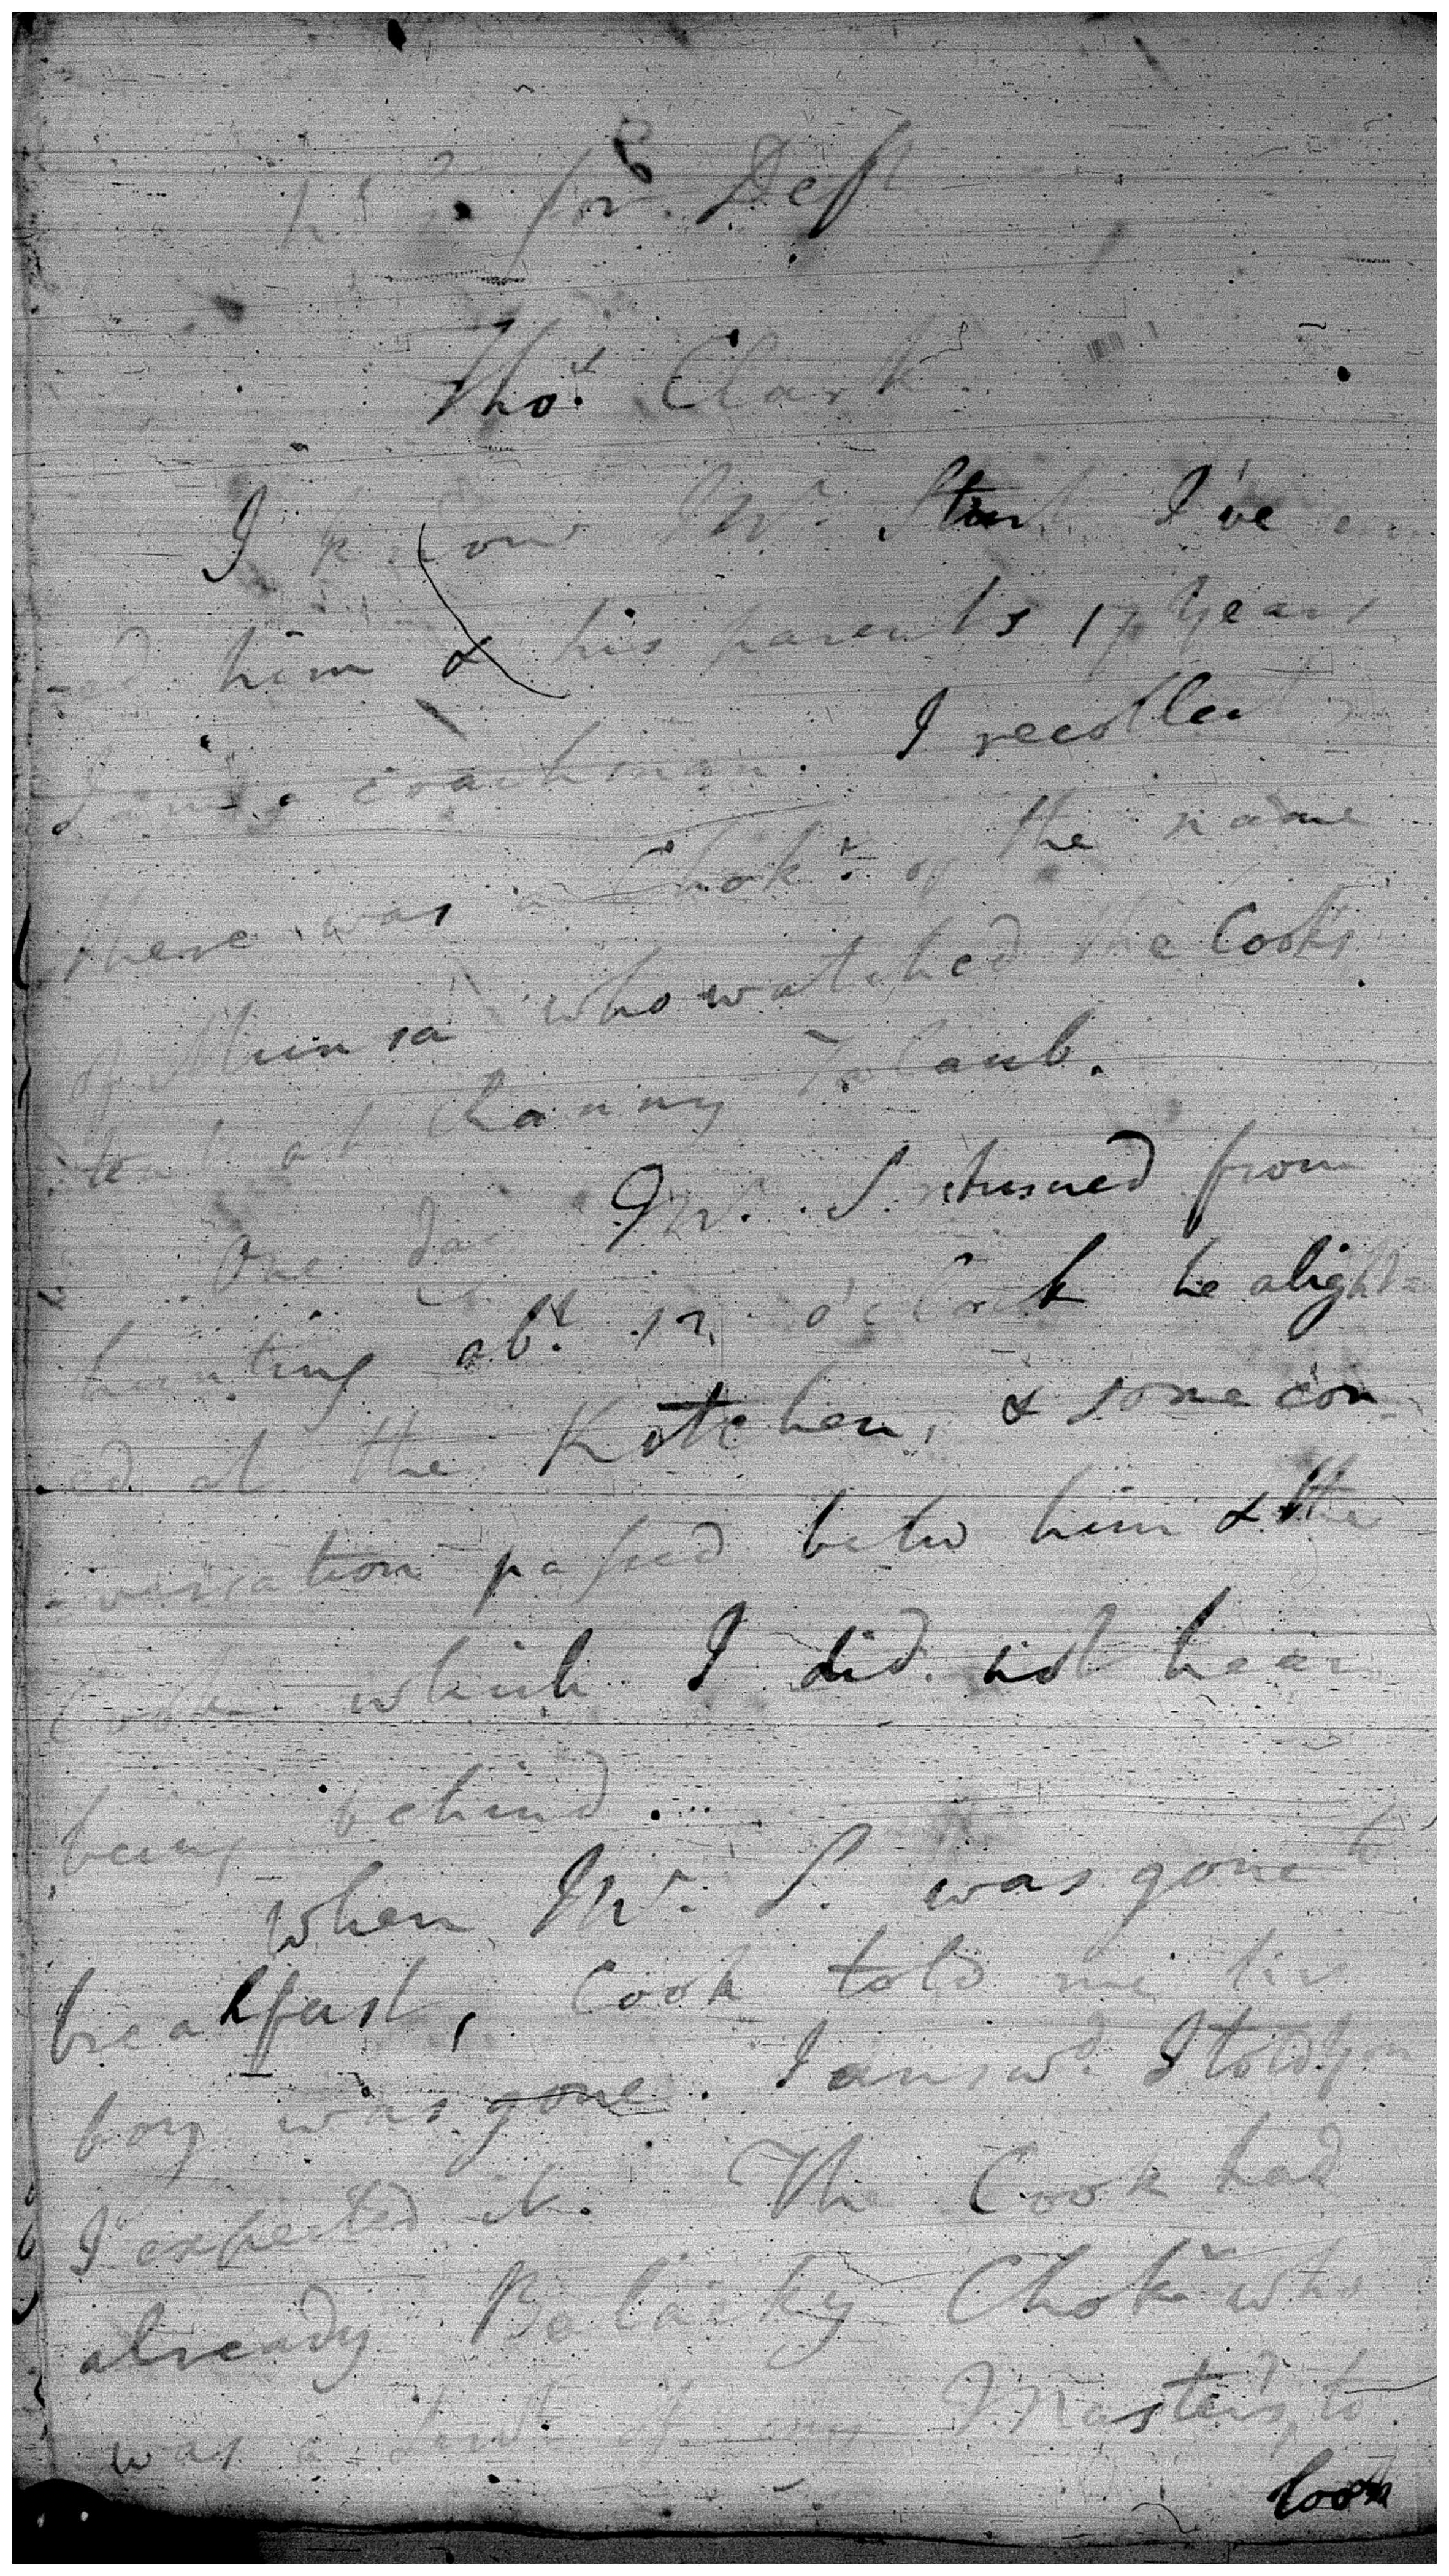 for Deft
Thos. Clark
I know Mr. Stuart I've
-ed him & his parents 17 Years
I am a coachman. I recollect
there was a Chokr. of the name
of Munsa who watched the Cooks
tent at Channy Talaub.
One day Mr. S. returned from
hunting abt. 12 o'clock he alight=
ed at the Kitchen, & some con-
-versation passed betw him & the
Cook which I did not hear
being behind.
when Mr. S. was gone to
breakfast, Cook told me his
boy was gone. I answd. I told you
I expected it. The Cook had
already Chokr who
was a servt. of my Master's to
look